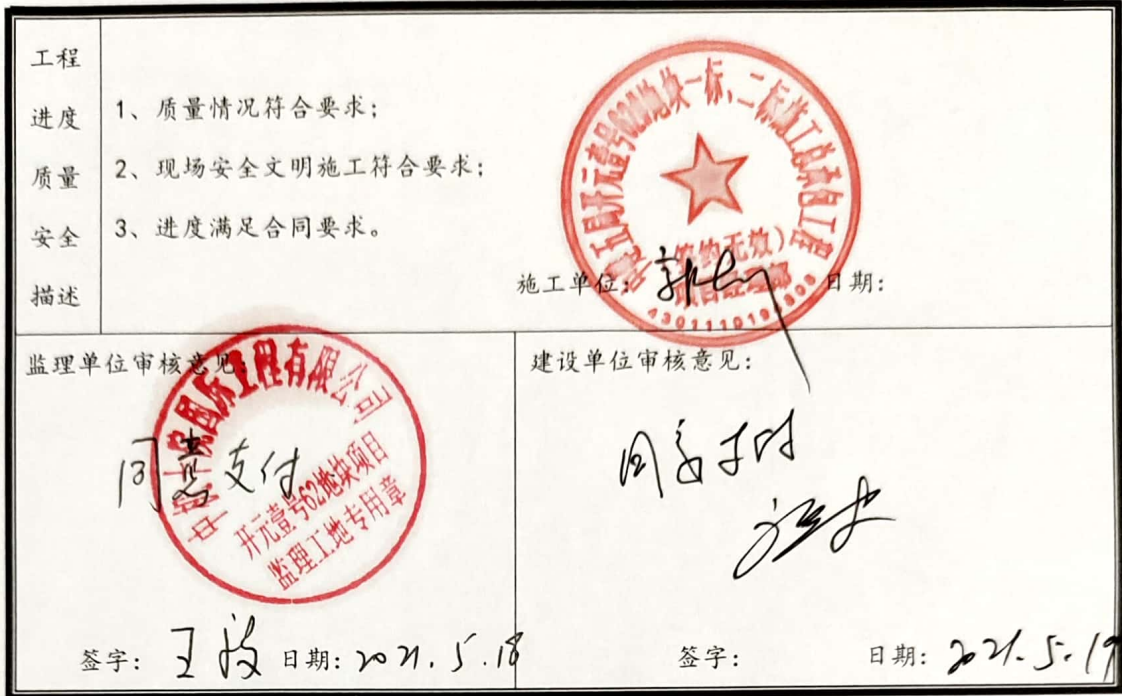 工程
进度
质量
安全
描述
1、质量情况符合要求；
2、现场安全文明施工符合要求；
3、进度满足合同要求。
开元壹号62地块一标、二标施工总承包工程
（签约无效）
项目经理部
施工单位：
日期：
监理单位审核意见：
国际工程有限公司
开元壹号62地块项目
监理工地专用章
同意支付
签字：王
日期：2021.5.18
建设单位审核意见：
同意支付
签字：
日期：2021.5.19